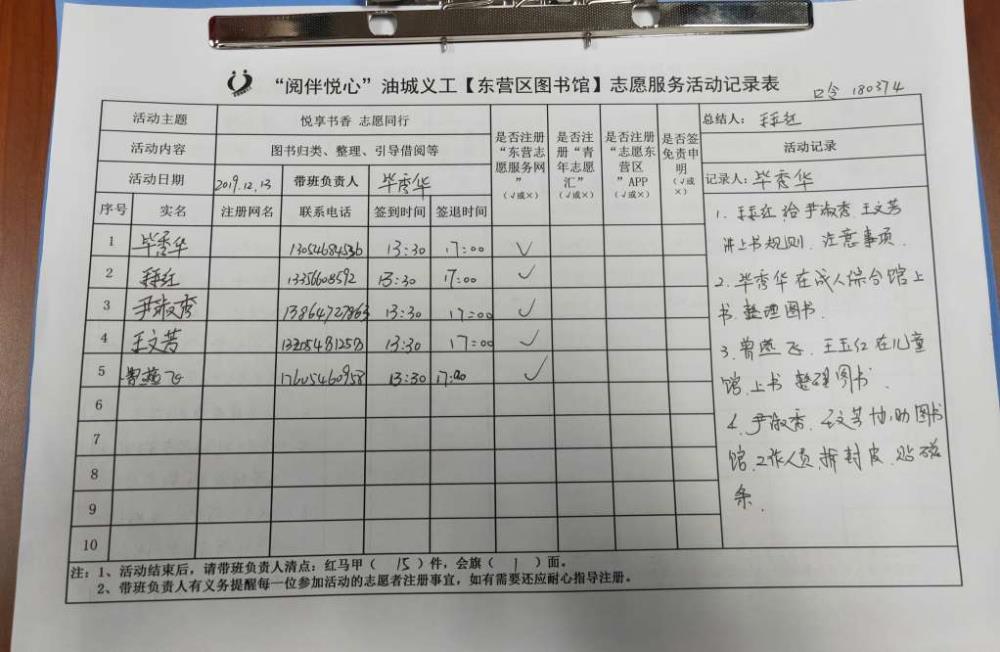 “阅伴悦心”油城义工【东营区图书馆】志愿服务活动记录表
口令 180374
活动主题 悦享书香 志愿同行
活动内容 图书归类、整理、引导借阅等
活动日期 2019.12.13 带班负责人 毕秀华
是否注册“东营志愿服务网”（√或×）
是否注册“青年志愿汇”（√或×）
是否注册“志愿东营区”APP（√或×）
是否签免责申明（√或×）
序号 实名 注册网名 联系电话 签到时间 签退时间
1 毕秀华 13054684536 13:30 17:00 √
2 13356608592 13:30 17:00 √
3 尹淑秀 13864727863 13:30 17:00 √
4 王文芳 13:30 17:00 √
5 曾燕飞 17605460958 13:30 17:00 √
6
7
8
9
10
总结人：
活动记录
记录人：毕秀华
1. 给尹淑秀、王文芳
讲上书规则、注意事项.
2. 毕秀华在成人综合馆上
书.整理图书.
3. 曾燕飞、王玉红在儿童
馆.上书 整理图书.
4. 尹淑秀、王文芳协助图书
馆.工作人员拆封皮、贴磁
条.
注：1、活动结束后，请带班负责人清点：红马甲（ 15 ）件，会旗（ 1 ）面。
2、带班负责人有义务提醒每一位参加活动的志愿者注册事宜，如有需要还应耐心指导注册。